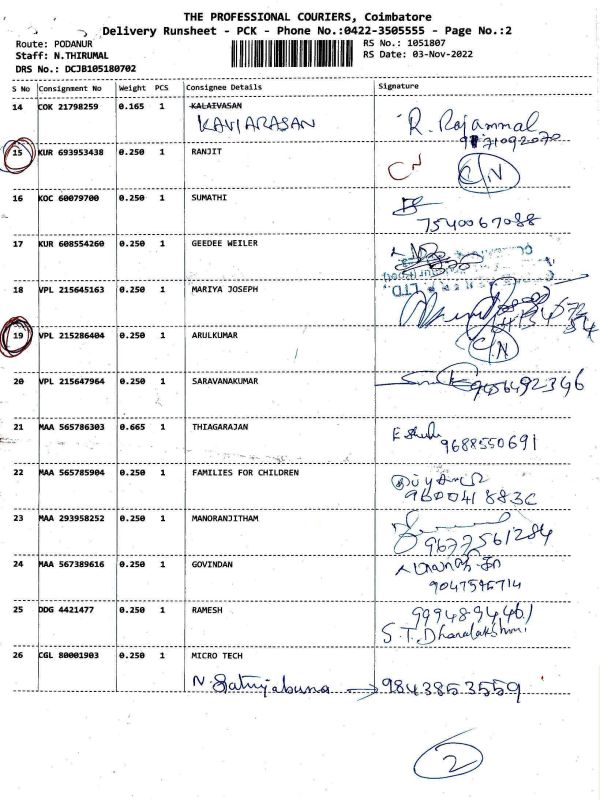 THE PROFESSIONAL COURIERS, Coimbatore
Delivery Runsheet - PCK - Phone No.:0422-3505555 - Page No.:2
Route: PODANUR
RS No.: 1051807
Staff: N.THIRUMAL
RS Date: 03-Nov-2022
DRS No.: DCJB105180702
S No Consignment No Weight PCS Consignee Details Signature
14 COK 21798259 0.165 1 KALAIVASAN
KAVIARASAN R. Rajammal
15 KUR 693953438 0.250 1 RANJIT
CN C/N
16 KOC 60079700 0.250 1 SUMATHI
7540067088
17 KUR 608554260 0.250 1 GEEDEE WEILER
18 VPL 215645163 0.250 1 MARIYA JOSEPH
19 VPL 215286404 0.250 1 ARULKUMAR
C/N
20 VPL 215647964 0.250 1 SARAVANAKUMAR
9456492346
21 MAA 565786303 0.665 1 THIAGARAJAN
9688550691
22 MAA 565785904 0.250 1 FAMILIES FOR CHILDREN
23 MAA 293958252 0.250 1 MANORANJITHAM
9677561284
24 MAA 567389616 0.250 1 GOVINDAN
25 DDG 4421477 0.250 1 RAMESH
9994894461
S.T.Dhanalakshmi
26 CGL 80001903 0.250 1 MICRO TECH
N. Sathyabama → 9843853559
2